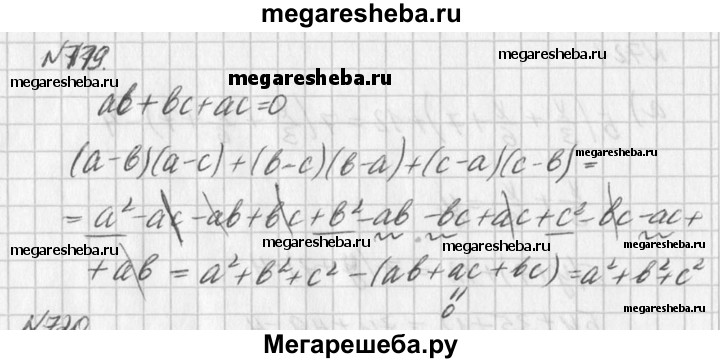 megaresheba.ru
N719.
megaresheba.ru
megaresheba.ru
megaresheba.ru
ab+bc+ac=0
(a-b)(a-c)+(b-c)(b-a)+(c-a)(c-b)=
megaresheba.ru
=a²-ac-ab+bc+b²-ab-bc+ac+c²-bc-ac+
megaresheba.ru
megaresheba.ru
+ab=a²+b²+c²-(ab+ac+bc)=a²+b²+c²
0
megaresheba.ru
N720
Мегарешеба.ру